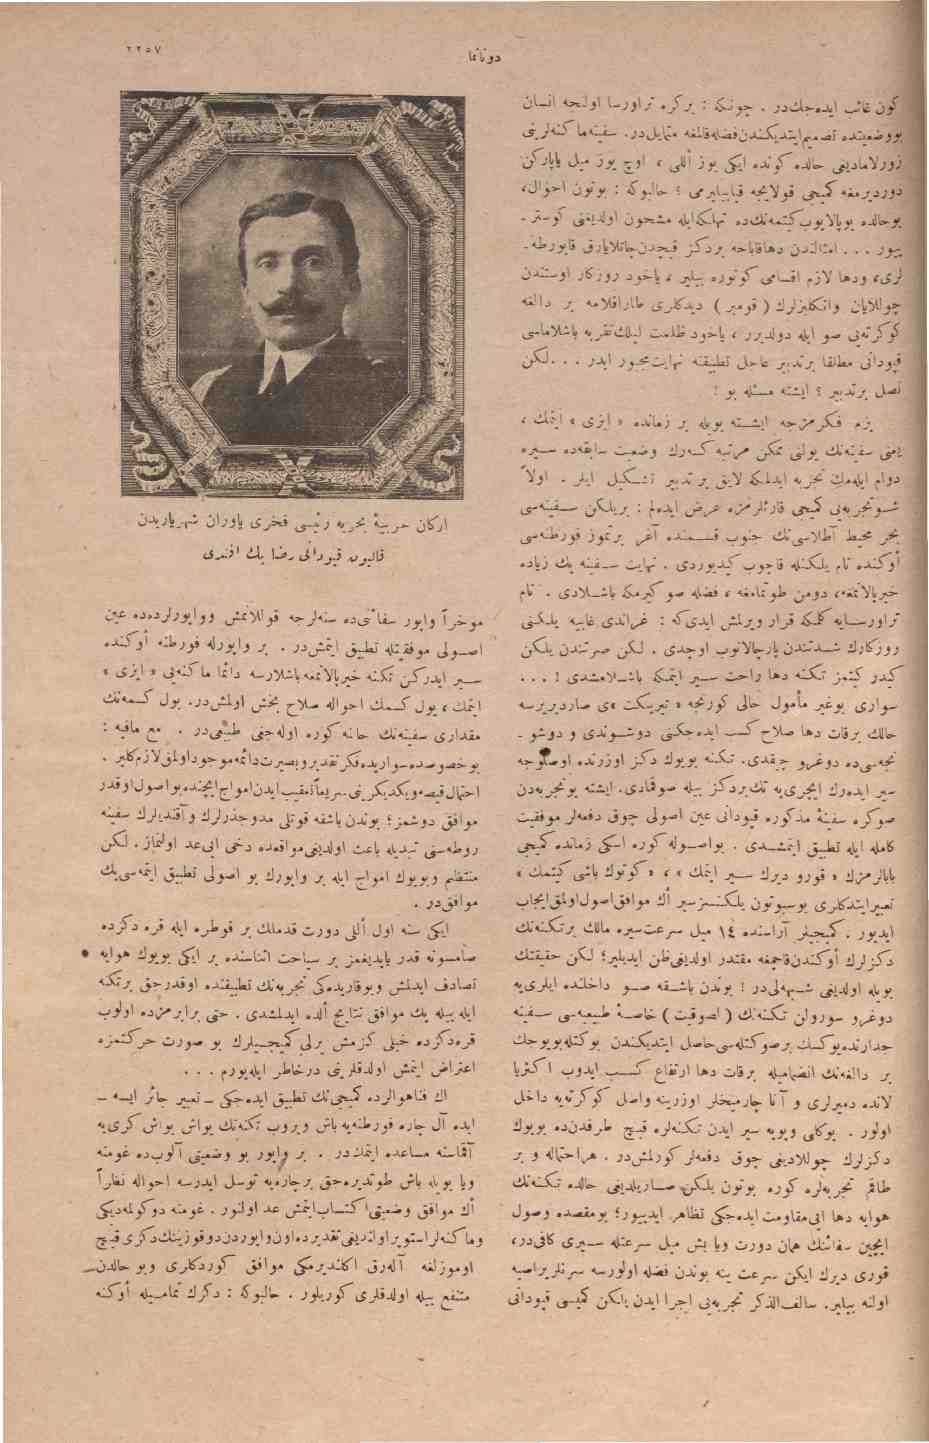 دوناما
٢٢٥٧
كون غائب ايده‌جكدر . چونكه : بركره تراورسا اولنجه انسان
بووضعيتده تصميم ايتديكندن فضله قالمغه متمايلدر. سفينه ماكنه‌لرينى
زورلامادينى حالده كونده ايكى يوز أللى ، اوچ يوز ميل ياپاركن
دورديرمغه كميجى قولايجه قيابيليرمى ؟ حالبوكه : بوتون احوال،
بوحالده بويالايوب كيتمه‌نك‌ده تهلكه‌ايله مشحون اولديغنى كوستر ـ
ييور . . . امثالندن دها قاباجه بردكز قيچدن چاتلايارق قاپورطه ـ
لرى، ودها لازم اقسامى كوتوره بيلير ، ياخود روزكار اوستندن
چوللايان وانكليزلرك ( قومبر ) ديدكلرى طاراقلامه بر دالغه
كوكرته‌يى صو ايله دولديرر ، ياخود ظلمت ليلك تقربه باشلاماسى
قپودانى مطلقا برتدبير عاجل تطبيقنه نهايت مجبور ايدر . . . لكن
نصل برتدبير ؟ ايشته مسئله بو !
بزم فكرمزجه ايشته بويله بر زمانده « ايزى » ايتمك ،
يعنى سفينه‌نك يولنى ممكن مرتبه كسه‌رك وضعيت سابقه‌ده سيره
دوام ايله‌مك تجربه ايدلمكه لايق بر تدبير تشكيل ايلر . اولاً
شو تجربه‌يى كميجى قارئلرمزه عرض ايده‌لم : بريلكن سفينه‌سى
بحر محيط آطلاسى‌نك جنوب قسمنده آغر برتموز فورطنه‌سى
أوكنده تام يلكنله قاچوب كيديوردى . نهايت سفينه پك زياده
خيرپالانمغه، دومن طوتمامغه ، فضله صو كيرمكه باشلادى . تام
تراورسايه كلمكه قرار ويرلمش ايدى‌كه : غراندى غابيه يلكنى
روزكارك شدتندن پارچالانوب اوچدى . لكن صرتندن يلكن
كيدر كيتمز تكنه دها راحت سير ايتمكه باشلامشدى ! . . .
سوارى بوغير مأمول حالى كورنجه « تيرينكت »ى صارديريرسه
حالك برقات دها صلاح كسب ايده‌جكنى دوشوندى و دوشو ـ
نجه‌سى‌ده دوغرو چيقدى. تكنه بويوك دكز اوزرنده اوصلوجه
سير ايده‌رك ايچرى‌يه تك بردكز بيله صوقمادى. ايشته بوتجربه‌دن
صوكره سفينهٔ مذكوره قپودانى عين اصولى چوق دفعه‌لر موفقيت
كامله ايله تطبيق ايتمشدى . بواصوله كوره اسكى زمانده كميجى
بابالرمزك « قورو ديرك سير ايتمك » ، « كوتوك باشى كيتمك »
تعبيرايتدكلرى بوسبوتون يلكنسزسير أك موافق اصول اولمق ايجاب
ايديور . كميجيلر آراسنده ١٤ ميل سرعت سيره مالك برتكنه‌نك
دكزلرك أوكندن قاچمغه مقتدر اولديغى ظن ايديلير؛ لكن حقيقتك
بويله اولديغى شبهه‌لى‌در ! بوندن باشقه صو داخلنده ايلرى‌يه
دوغرو سورولن تكنه‌نك ( اصوقيت ) خاصهٔ طبيعيه‌سى سفينه
جدارنده‌يوكسك برصوكتله‌سى حاصل ايتديكندن بوكتله‌بويوجك
بر دالغه‌نك انضماميله برقات دها ارتفاع كسب ايدوب اكثريا
لانده دميرلرى و آنا چارميخلر اوزرينه واصل كوكرته‌يه داخل
اولور . بوكالى وبويه سير ايدن تكنه‌لره قيچ طرفندن‌ده بويوك
دكزلرك چوللاديغى چوق دفعه‌لر كورلمش‌در . هراحتماله و بر
طاقم تجربه‌لره كوره بوتون يلكن صاريلديغى حالده تكنه‌نك
هوايه دها ايى مقاومت ايده‌جكى تظاهر ايدييور؛ بومقصده وصول
ايچين سفائنك همان دورت ويا بش ميل سرعتله سيرى كافى‌در،
قورى ديرك ايكن سرعت ينه بوندن فضله اولورسه سرنلر پراصيه
اولنه بيلير. سالف‌الذكر تجربه‌يى اجرا ايدن يلكن كميسى قپودانى
اركان حربيهٔ بحريه رئيسى فخرى ياوران شهرياريدن
قاليون قپودانى رضا بك افندى
موخراً واپور سفائنى‌ده سنه‌لرجه قوللانمش وواپورلرده‌ده عين
اصولى موفقيتله تطبيق ايتمش‌در . بر واپورله فورطنه أوكنده
سير ايدركن تكنه خيرپالانمغه باشلارسه دائما ماكنه‌يى « ايزى »
ايتمك ، يول كسمك احواله صلاح بخش اولمش‌در. يول كسمه‌نك
مقدارى سفينه‌نك حالنه كوره اوله‌جغى طبيعى‌در . مع مافيه :
بوخصوصده‌سواريده‌فكر تقديروبصيرت دائمه موجود اولمق لازم كلير .
احتمال قيصه ويكديكرينى سريعاً تعقيب ايدن امواج ايچنده بواصول اوقدر
موافق دوشمز؛ بوندن باشقه قوتلى مدوجذرلرك و آقنديلرك سفينه
روطه‌سنى تبديله باعث اولديغى مواقعده دخى ايى عد اولنماز. لكن
منتظم وبويوك امواج ايله بر واپورك بو اصولى تطبيق ايتمه‌سى پك
موافق‌در .
ايكى سنه اول أللى دورت قدملك بر قوطره ايله قره دكزده
صامسونه قدر ياپديغمز بر سياحت اثناسنده بر ايكى بويوك هوايه
تصادف ايدلمش وبوقاريده‌كى تجربه‌نك تطبيقنده اوقدرجق برتكنه
ايله بيله پك موافق نتايج ألده ايدلمشدى . حتى برابرمزده اولوب
قره‌دكزده خيلى كزمش يرلى كميجيلرك بو صورت حركتمزه
اعتراض ايتمش اولدقلرينى درخاطر ايله‌يورم . . .
اك فنا هوالرده كميجى‌نك تطبيق ايده‌جكى ـ تعبير جائز ايسه ـ
ايده آل چاره فورطنه‌يه باش ويروب تكنه‌نك يواش يواش كرى‌يه
آقماسنه مساعده ايتمك‌در . بر واپور بو وضعيتى آلوب‌ده غومنه
ويا بويله باش طوتديره‌جق برچاره‌يه توسل ايدرسه احواله نظراً
أك موافق وضعيتى اكتساب ايتمش عد اولنور . غومنه دوكولمه‌ديكى
وماكنه‌لر استوپر اولنديغى تقديرده اون واپوردن دوقوزينك دكزى قيچ
اوموزلغه آله‌رق اكلنديرمكى موافق كوردكلرى وبو حالدن
متنفع بيله اولدقلرى كوريلور . حالبوكه : دكزك تماميله أوكنه